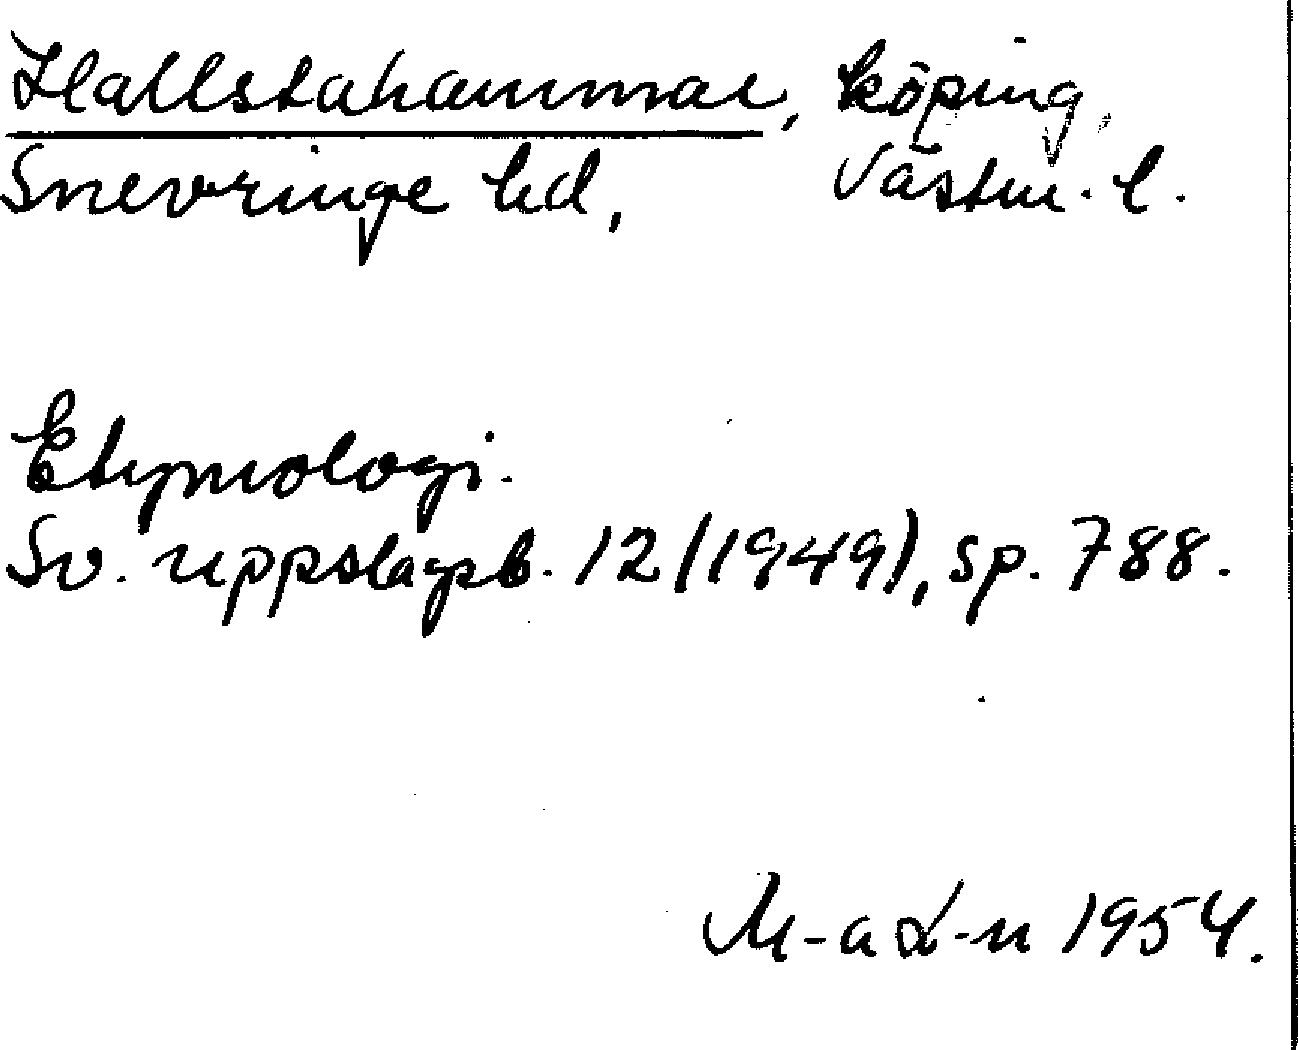 Hallstahammar, köping,
Snevringe hd, Västm. l.
Etymologi.
Sv. uppslagsb. 12 (1949), sp. 788.
M-a L-n 1954.